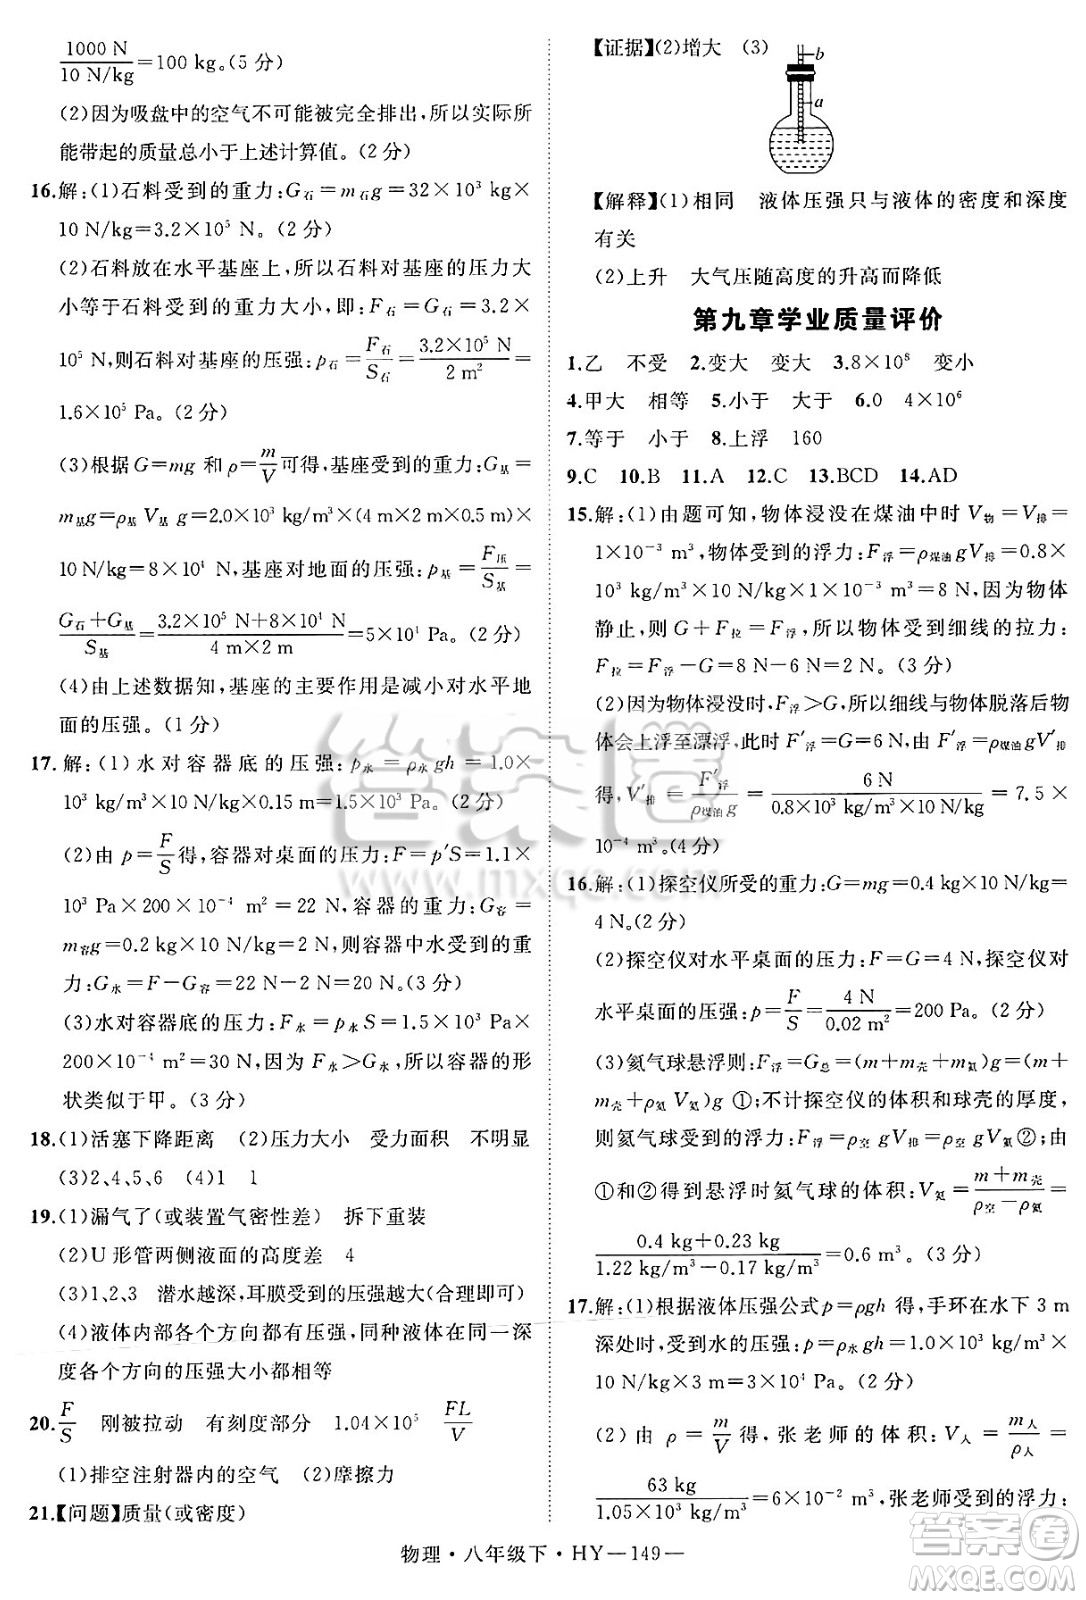 1000 N/10 N/kg=100 kg。(5 分)
(2)因为吸盘中的空气不可能被完全排出,所以实际所
能带起的质量总小于上述计算值。(2 分)
16.解:(1)石料受到的重力:G石=m石g=32×10³ kg×
10 N/kg=3.2×10⁵ N。(2 分)
(2)石料放在水平基座上,所以石料对基座的压力大
小等于石料受到的重力大小,即:F石=G石=3.2×
10⁵ N,则石料对基座的压强:p石=F石/S石=3.2×10⁵ N/2 m²=
1.6×10⁵ Pa。(2 分)
(3)根据G=mg 和 ρ=m/V可得,基座受到的重力:G基=
m基g=ρ基 V基 g=2.0×10³ kg/m³×(4 m×2 m×0.5 m)×
10 N/kg=8×10⁴ N,基座对地面的压强:p基=F压/S基=
G石+G基/S基=3.2×10⁵ N+8×10⁴ N/4 m×2 m=5×10⁴ Pa。(2 分)
(4)由上述数据知,基座的主要作用是减小对水平地
面的压强。(1 分)
17.解:(1)水对容器底的压强:p水=ρ水 gh=1.0×
10³ kg/m³×10 N/kg×0.15 m=1.5×10³ Pa。(2 分)
(2)由 p=F/S得,容器对桌面的压力:F=p′S=1.1×
10³ Pa×200×10⁻⁴ m²=22 N,容器的重力:G容=
m容g=0.2 kg×10 N/kg=2 N,则容器中水受到的重
力:G水=F-G容=22 N-2 N=20 N。(3 分)
(3)水对容器底的压力:F水=p水S=1.5×10³ Pa×
200×10⁻⁴ m²=30 N,因为 F水>G水,所以容器的形
状类似于甲。(3 分)
18.(1)活塞下降距离 (2)压力大小 受力面积 不明显
(3)2、4、5、6 (4)1 1
19.(1)漏气了(或装置气密性差) 拆下重装
(2)U 形管两侧液面的高度差 4
(3)1、2、3 潜水越深,耳膜受到的压强越大(合理即可)
(4)液体内部各个方向都有压强,同种液体在同一深
度各个方向的压强大小都相等
20.F/S 刚被拉动 有刻度部分 1.04×10⁵ FL/V
(1)排空注射器内的空气 (2)摩擦力
21.【问题】质量(或密度)
【证据】(2)增大 (3)
b
a
【解释】(1)相同 液体压强只与液体的密度和深度
有关
(2)上升 大气压随高度的升高而降低
第九章学业质量评价
1.乙 不受 2.变大 变大 3.8×10⁸ 变小
4.甲大 相等 5.小于 大于 6.0 4×10⁶
7.等于 小于 8.上浮 160
9.C 10.B 11.A 12.C 13.BCD 14.AD
15.解:(1)由题可知,物体浸没在煤油中时 V物=V排=
1×10⁻³ m³,物体受到的浮力:F浮=ρ煤油 gV排=0.8×
10³ kg/m³×10 N/kg×1×10⁻³ m³=8 N,因为物体
静止,则 G+F拉=F浮,所以物体受到细线的拉力:
F拉=F浮-G=8 N-6 N=2 N。(3 分)
(2)因为物体浸没时 F浮>G,所以细线与物体脱落后物
体会上浮至漂浮,此时 F′浮=G=6 N,由 F′浮=ρ煤油gV′排
得,V′排=F′浮/ρ煤油 g=6 N/0.8×10³ kg/m³×10 N/kg=7.5×
10⁻⁴ m³。(4 分)
16.解:(1)探空仪所受的重力:G=mg=0.4 kg×10 N/kg=
4 N。(2 分)
(2)探空仪对水平桌面的压力:F=G=4 N,探空仪对
水平桌面的压强:p=F/S=4 N/0.02 m²=200 Pa。(2 分)
(3)氦气球悬浮则:F浮=G总=(m+m壳+m氦)g=(m
+m壳+ρ氦 V氦)g ①;不计探空仪的体积和球壳的厚度,
则氦气球受到的浮力:F浮=ρ空 gV排=ρ空 gV氦②;由
①和②得悬浮时氦气球的体积:V氦=m+m壳/ρ空-ρ氦=
0.4 kg+0.23 kg/1.22 kg/m³-0.17 kg/m³=0.6 m³。(3 分)
17.解:(1)根据液体压强公式 p=ρgh 得,手环在水下 3 m
深处时,受到水的压强:p=ρ水 gh=1.0×10³ kg/m³×
10 N/kg×3 m=3×10⁴ Pa。(2 分)
(2)由 ρ=m/V得,张老师的体积:V人=m人/ρ人=
63 kg/1.05×10³ kg/m³=6×10⁻² m³,张老师受到的浮力:
物理·八年级下·HY—149—
答案卷
www.mxqe.com
答案圈
MXQE.COM